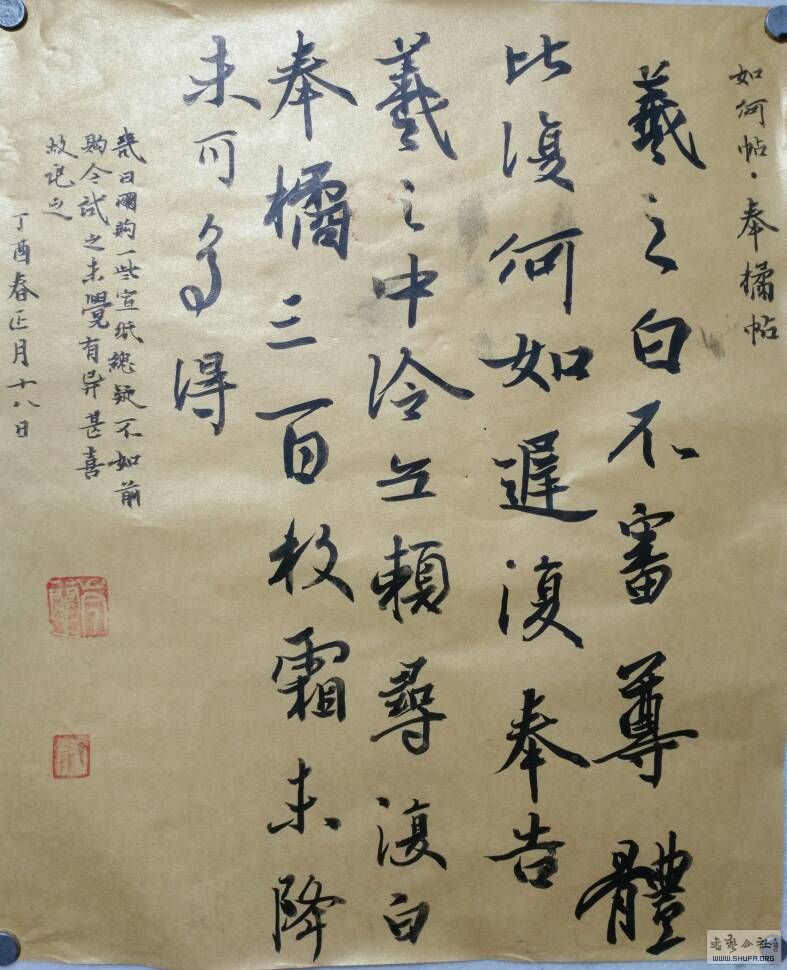 如何帖·奉橘帖
羲之白不審尊體
比復何如遲復奉告
羲之中冷無賴尋復白
奉橘三百枚霜未降
未可多得
日網購一些宣紙總疑不如前
購今試之未覺有異甚喜
故記之
丁酉春正月十八日
書藝公社
WWW.SHUFA.ORG